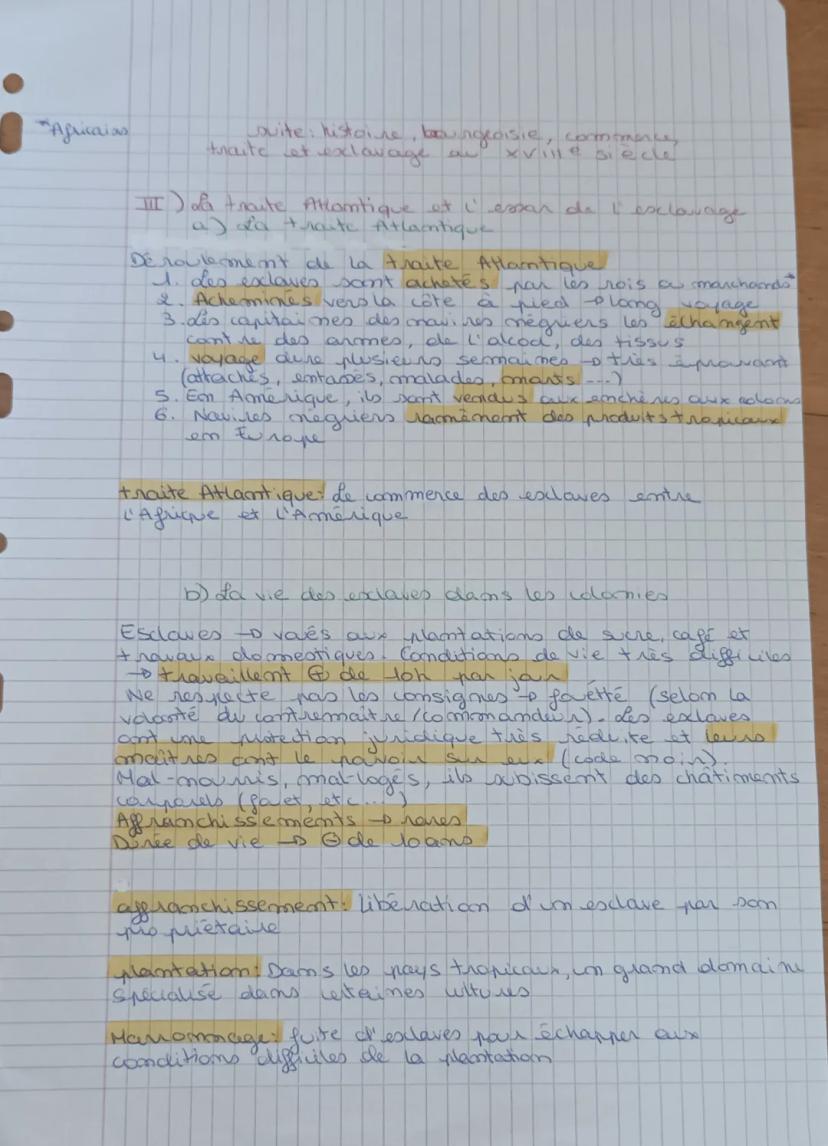 *Africains
suite : histoire, bourgeoisie, commerce,
traite et esclavage au XVIIIe siècle
III) La traite Atlantique et l'essor de l'esclavage
a) La traite Atlantique
Déroulement de la traite Atlantique
1. Les esclaves sont achetés par les rois ou marchands*
2. Acheminés vers la côte à pied → long voyage
3. Les capitaines des navires négriers les échangent
contre des armes, de l'alcool, des tissus
4. Voyage dure plusieurs semaines → très éprouvant
(attachés, entassés, malades, morts ...)
5. En Amérique, ils sont vendus aux enchères aux colons
6. Navires négriers ramènent des produits tropicaux
en Europe
traite Atlantique : Le commerce des esclaves entre
l'Afrique et l'Amérique
b) La vie des esclaves dans les colonies
Esclaves → voués aux plantations de sucre, café et
travaux domestiques. Conditions de vie très difficiles
→ travaillent ⊕ de 10h par jour
Ne respecte pas les consignes → fouetté (selon la
volonté du contremaître/commandeur). Les esclaves
ont une protection juridique très réduite et leurs
maîtres ont le pouvoir sur eux (code noir).
Mal-nourris, mal-logés, ils subissent des châtiments
corporels (fouet, etc...)
Affranchissements → rares
Durée de vie → ⊖ de 10 ans
affranchissement : libération d'un esclave par son
propriétaire
plantation : Dans les pays tropicaux, un grand domaine
spécialisé dans certaines cultures
Marronnage : fuite d'esclaves pour échapper aux
conditions difficiles de la plantation